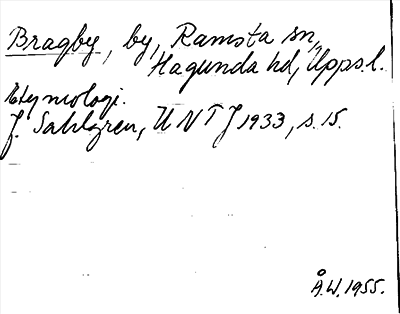 Bragby, by, Ramsta sn,
Hagunda hd, Upps.l.
Etymologi.
J. Sahlgren, UNTJ 1933, s. 15.
Å.W. 1955.